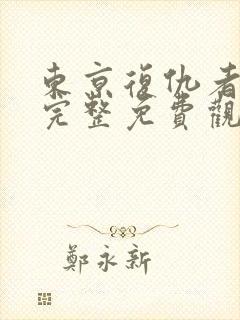 東京復仇者
完整免費觀
鄭永新